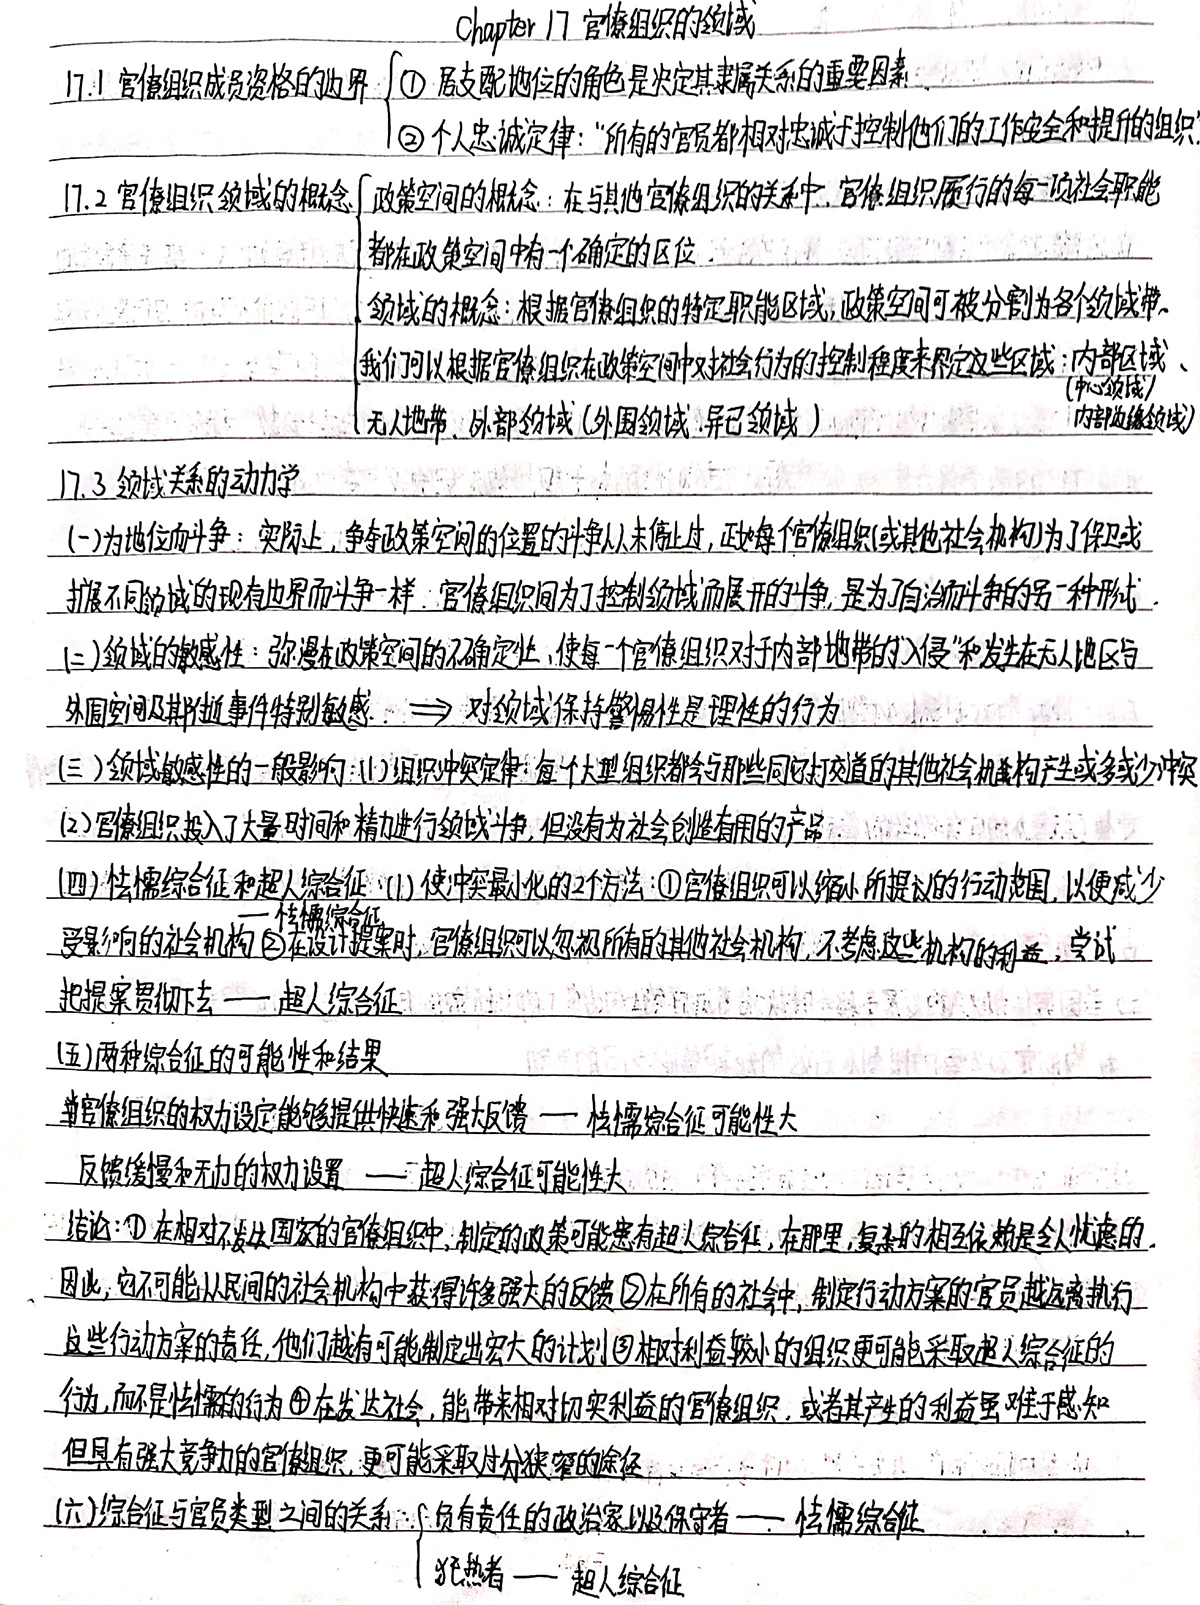 Chapter 17 官僚组织的领域
17.1 官僚组织成员资格的边界 ① 居支配地位的角色是决定其隶属关系的重要因素.
② 个人忠诚定律："所有的官员都相对忠诚于控制他们的工作安全和提升的组织"
17.2 官僚组织领域的概念 政策空间的概念：在与其他官僚组织的关系中，官僚组织履行的每一项社会职能
都在政策空间中有一个确定的区位.
领域的概念：根据官僚组织的特定职能区域，政策空间可被分割为各个领域带.
我们可以根据官僚组织在政策空间中对社会行为的控制程度来界定这些区域：内部区域、
(中心领域/
无人地带、外部领域(外围领域、异己领域) 内部边缘领域)
17.3 领域关系的动力学
(一)为地位而斗争：实际上，争夺政策空间的位置的斗争从未停止过，正如每个官僚组织(或其他社会机构)为了保卫或
扩展不同领域的现有边界而斗争一样. 官僚组织间为了控制领域而展开的斗争，是为了自治而斗争的另一种形式.
(二)领域的敏感性：弥漫在政策空间的不确定性，使每一个官僚组织对于内部地带的"入侵"和发生在无人地区与
外围空间及其附近事件特别敏感. ⇒ 对领域保持警惕性是理性的行为
(三)领域敏感性的一般影响：(1)组织冲突定律：每个大型组织都会与那些同它打交道的其他社会机构产生或多或少冲突
(2)官僚组织投入了大量时间和精力进行领域斗争，但没有为社会创造有用的产品
(四)怯懦综合征和超人综合征：(1)使冲突最小化的2个方法：①官僚组织可以缩小所提议的行动范围，以便减少
——怯懦综合征
受影响的社会机构 ②在设计提案时，官僚组织可以忽视所有的其他社会机构，不考虑这些机构的利益，尝试
把提案贯彻下去——超人综合征
(五)两种综合征的可能性和结果
当官僚组织的权力设定能够提供快速和强大反馈——怯懦综合征可能性大
反馈缓慢和无力的权力设置——超人综合征可能性大
结论：①在相对不发达国家的官僚组织中，制定的政策可能患有超人综合征，在那里，复杂的相互依赖是令人忧虑的.
因此，它不可能从民间的社会机构中获得许多强大的反馈②在所有的社会中，制定行动方案的官员越远离执行
这些行动方案的责任，他们越有可能制定出宏大的计划③相对利益较小的组织更可能采取超人综合征的
行为，而不是怯懦的行为④在发达社会，能带来相对切实利益的官僚组织，或者其产生的利益虽难于感知
但具有强大竞争力的官僚组织，更可能采取过分狭窄的途径
(六)综合征与官员类型之间的关系： 负有责任的政治家以及保守者——怯懦综合征
狂热者——超人综合征